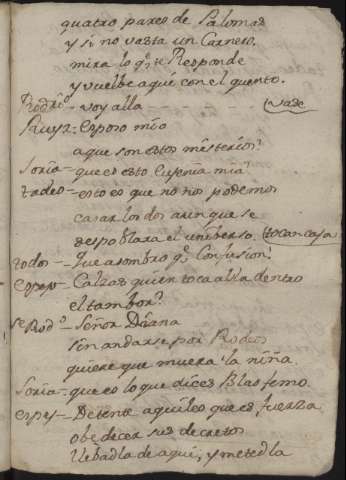 quatro pares de Palomas
y si no vasta un Carnero.
mira lo q.e te Responde
y vuelbe aqui con el quento.
Rodrig.o – voy alla – – – – – vase
Ruyz – esposo mio
a que son estos misterios?
Soria – que es esto Eugenia mia?
tadeo – esto es que no nos podemos
casar los dos aunque se
despoblara el uniberso. (tocan caja
todos – que asombro q.e Confusion!
espe – Calzas quien toca alla dentro
el tambor?
se Rod.o – Señor Diana
sin andarse por Rodeos
quiere que muera la niña.
Soria – que es lo que dices Blasfemo.
espe – Detente aquileo que es fuerza
obedecer sus decretos
llebadla de aqui, y metedla